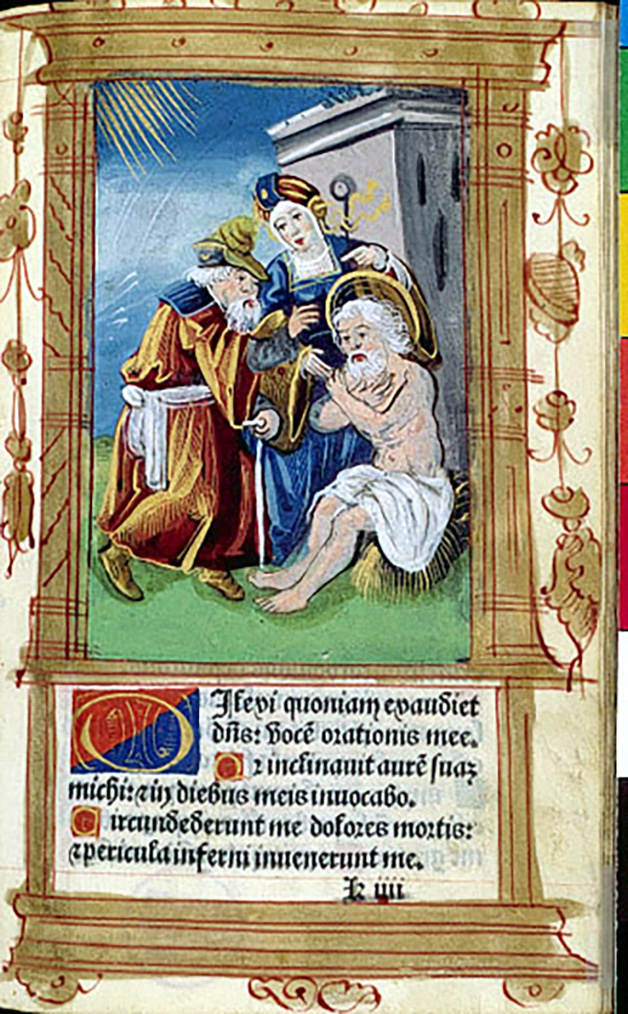 Ilexi quoniam exaudiet
dñs: vocē orationis mee.
Qz inclinauit aurē suaʒ
michi: ⁊ in diebus meis inuocabo.
Circundederunt me dolores mortis:
⁊ pericula inferni inuenerunt me.
k iiii